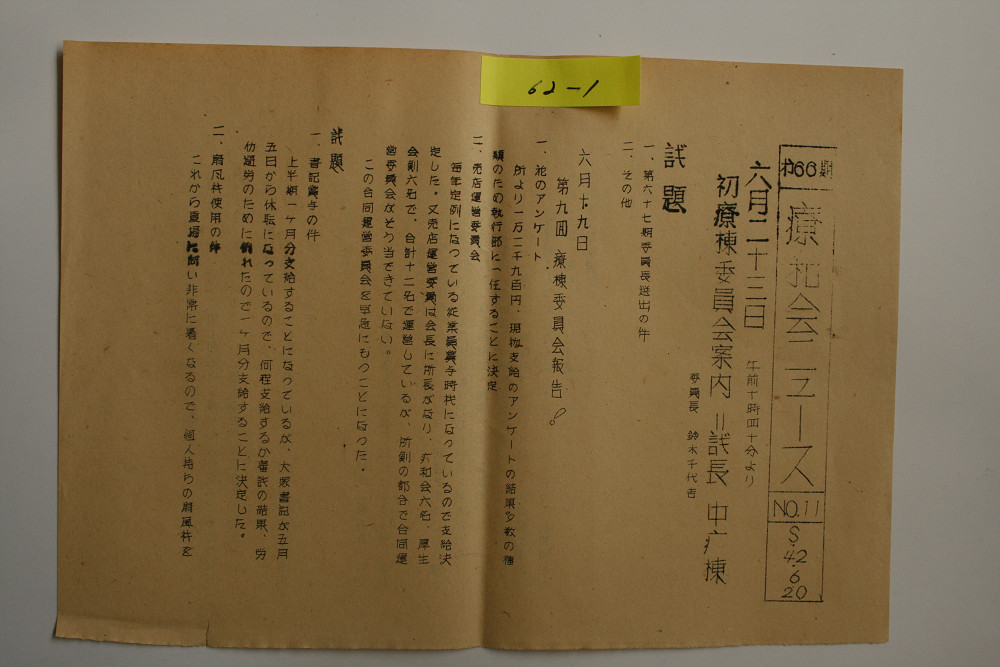 62-1
才66期
療和会ニュース
NO.11
S.42.6.20
六月二十三日
午前十時四十分より
初療棟委員会案内=試長 中广棟
委員長 鈴木千代吉
試題
一、第六十七期委員長送出の件
二、その他
六月十九日
第九回 療棟委員会報告!
一、池のアンケート
所より一万二千九百円、現物支給のアンケートの結果多数の種
類のため執行部に一任することに決定
二、売店運営委員会
毎年定例になっている従業員賞与時代になっているので支給決
定した。又売店運営委員は会長に所長がなり、六和会六名、厚生
会側六名で、合計十二名で運営しているが、所側の都合で合同運
営委員会がそう当できていない。
この合同運営委員会を早急にもつことになった。
試題
一、書記賞与の件
上半期一ヶ月分支給することになっているが、大塚書記が五月
五日から休転になっているので、何程支給するか審試の結果、労
幼過労のために倒れたので一ヶ月分支給することに決定した。
二、扇风杵使用の件
これから夏場に向い非常に暑くなるので、個人持ちの扇風杵を